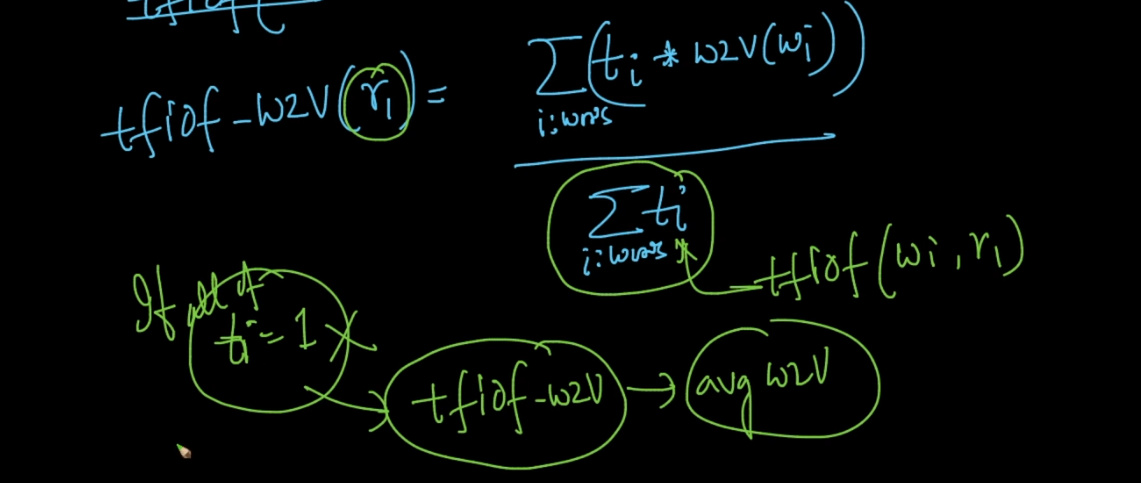 tfidf-w2v(r₁) = Σ i:words (tᵢ * w2v(wᵢ)) / Σ i:words tᵢ
tfidf(wᵢ, r₁)
If all
tᵢ = 1
tfidf-w2v → avg w2v